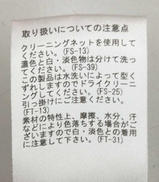 取り扱いについての注意点
クリーニングネットを使用して
ください。(FS-13)
濃色と白・淡色物は分けて洗っ
てください。(FS-39)
この製品は水洗いによって型く
ずれしますのでドライクリーニ
ングしてください。(FS-25)
引っ掛けにご注意ください。
(FT-13)
素材の特性上、摩擦、水分、汗
などにより色落ちする場合がご
ざいますので白・淡色との着用
に注意してください。(FT-31)